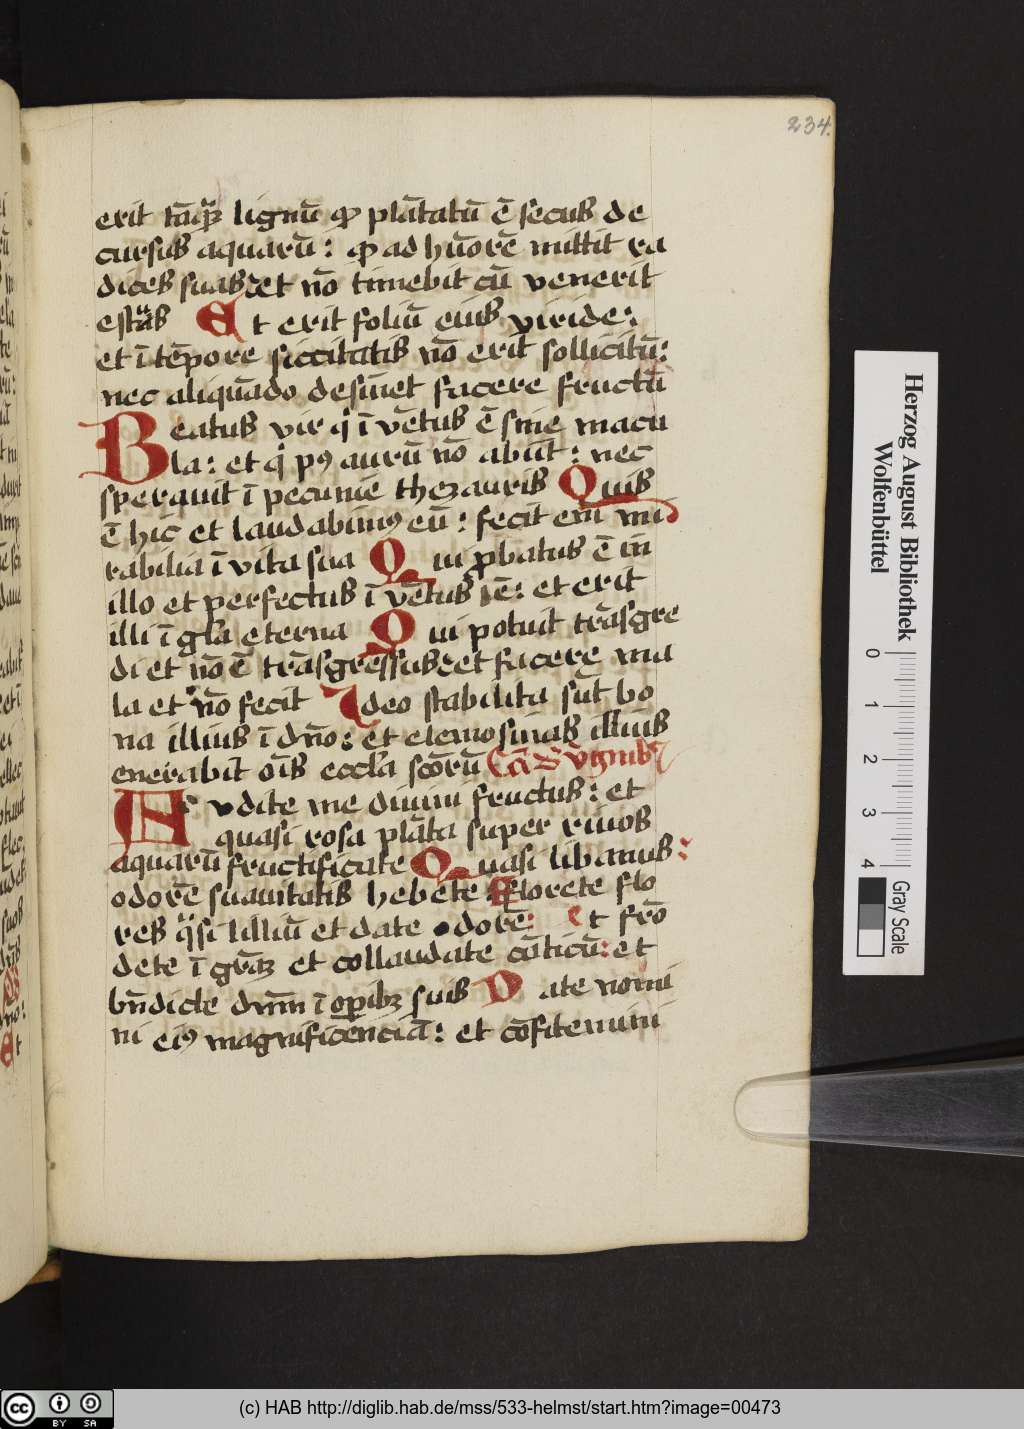 234.
erit tāqȝ lignū qđ plātatū ē secus de
cursus aquarū: qđ ad hūorē mittit ra
dices suas et nō timebit cū venerit
estas Et erit foliū eius viride:
et ī tēpore siccitatis nō erit sollicitū:
nec aliquādo desinet facere fructū
Beatus vir qͥ īvētus ē sine macu
la: et qͥ pꝰ aurū nō abiit: nec
speravit ī pecunie thezauris Quis
ē hic et laudabimꝰ eū: fecit eni mi
rabilia ī vita sua Qui ꝓbatus ē in
illo et perfectus īvētus ē: et erit
illi ī gl̄a eterna Qui potuit trāsgre
di et nō ē trāsgressus et facere ma
la et nō fecit Ideo stabilita sūt bo
na illius ī dn̄o: et elemosinas illius
enerabit oīs eccl̄a scōrū
Audite me divini fructus: et
quasi rosa plāta super rivos
aquarū fructificate Quasi libanus:
odorē suavitatis hebete Florete flo
res qͣsi lilliū et date odorē: et frō
dete ī grāȝ et collaudate cāticū: et
bn̄dicite dn̄m ī oꝑibȝ suis Date nomi
ni eiꝰ magnificenciā: et cōfitemini
Herzog August Bibliothek
Wolfenbüttel
0 1 2 3 4
Gray Scale
cc BY SA
(c) HAB http://diglib.hab.de/mss/533-helmst/start.htm?image=00473